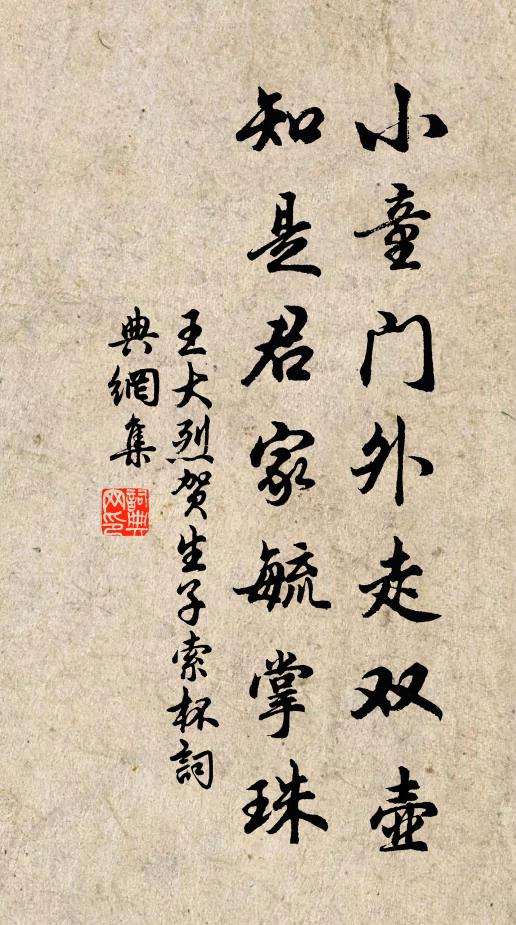 小童门外走双壶
知是君家毓掌珠
王大烈贺生子索杯词
典網集
詞典
网印